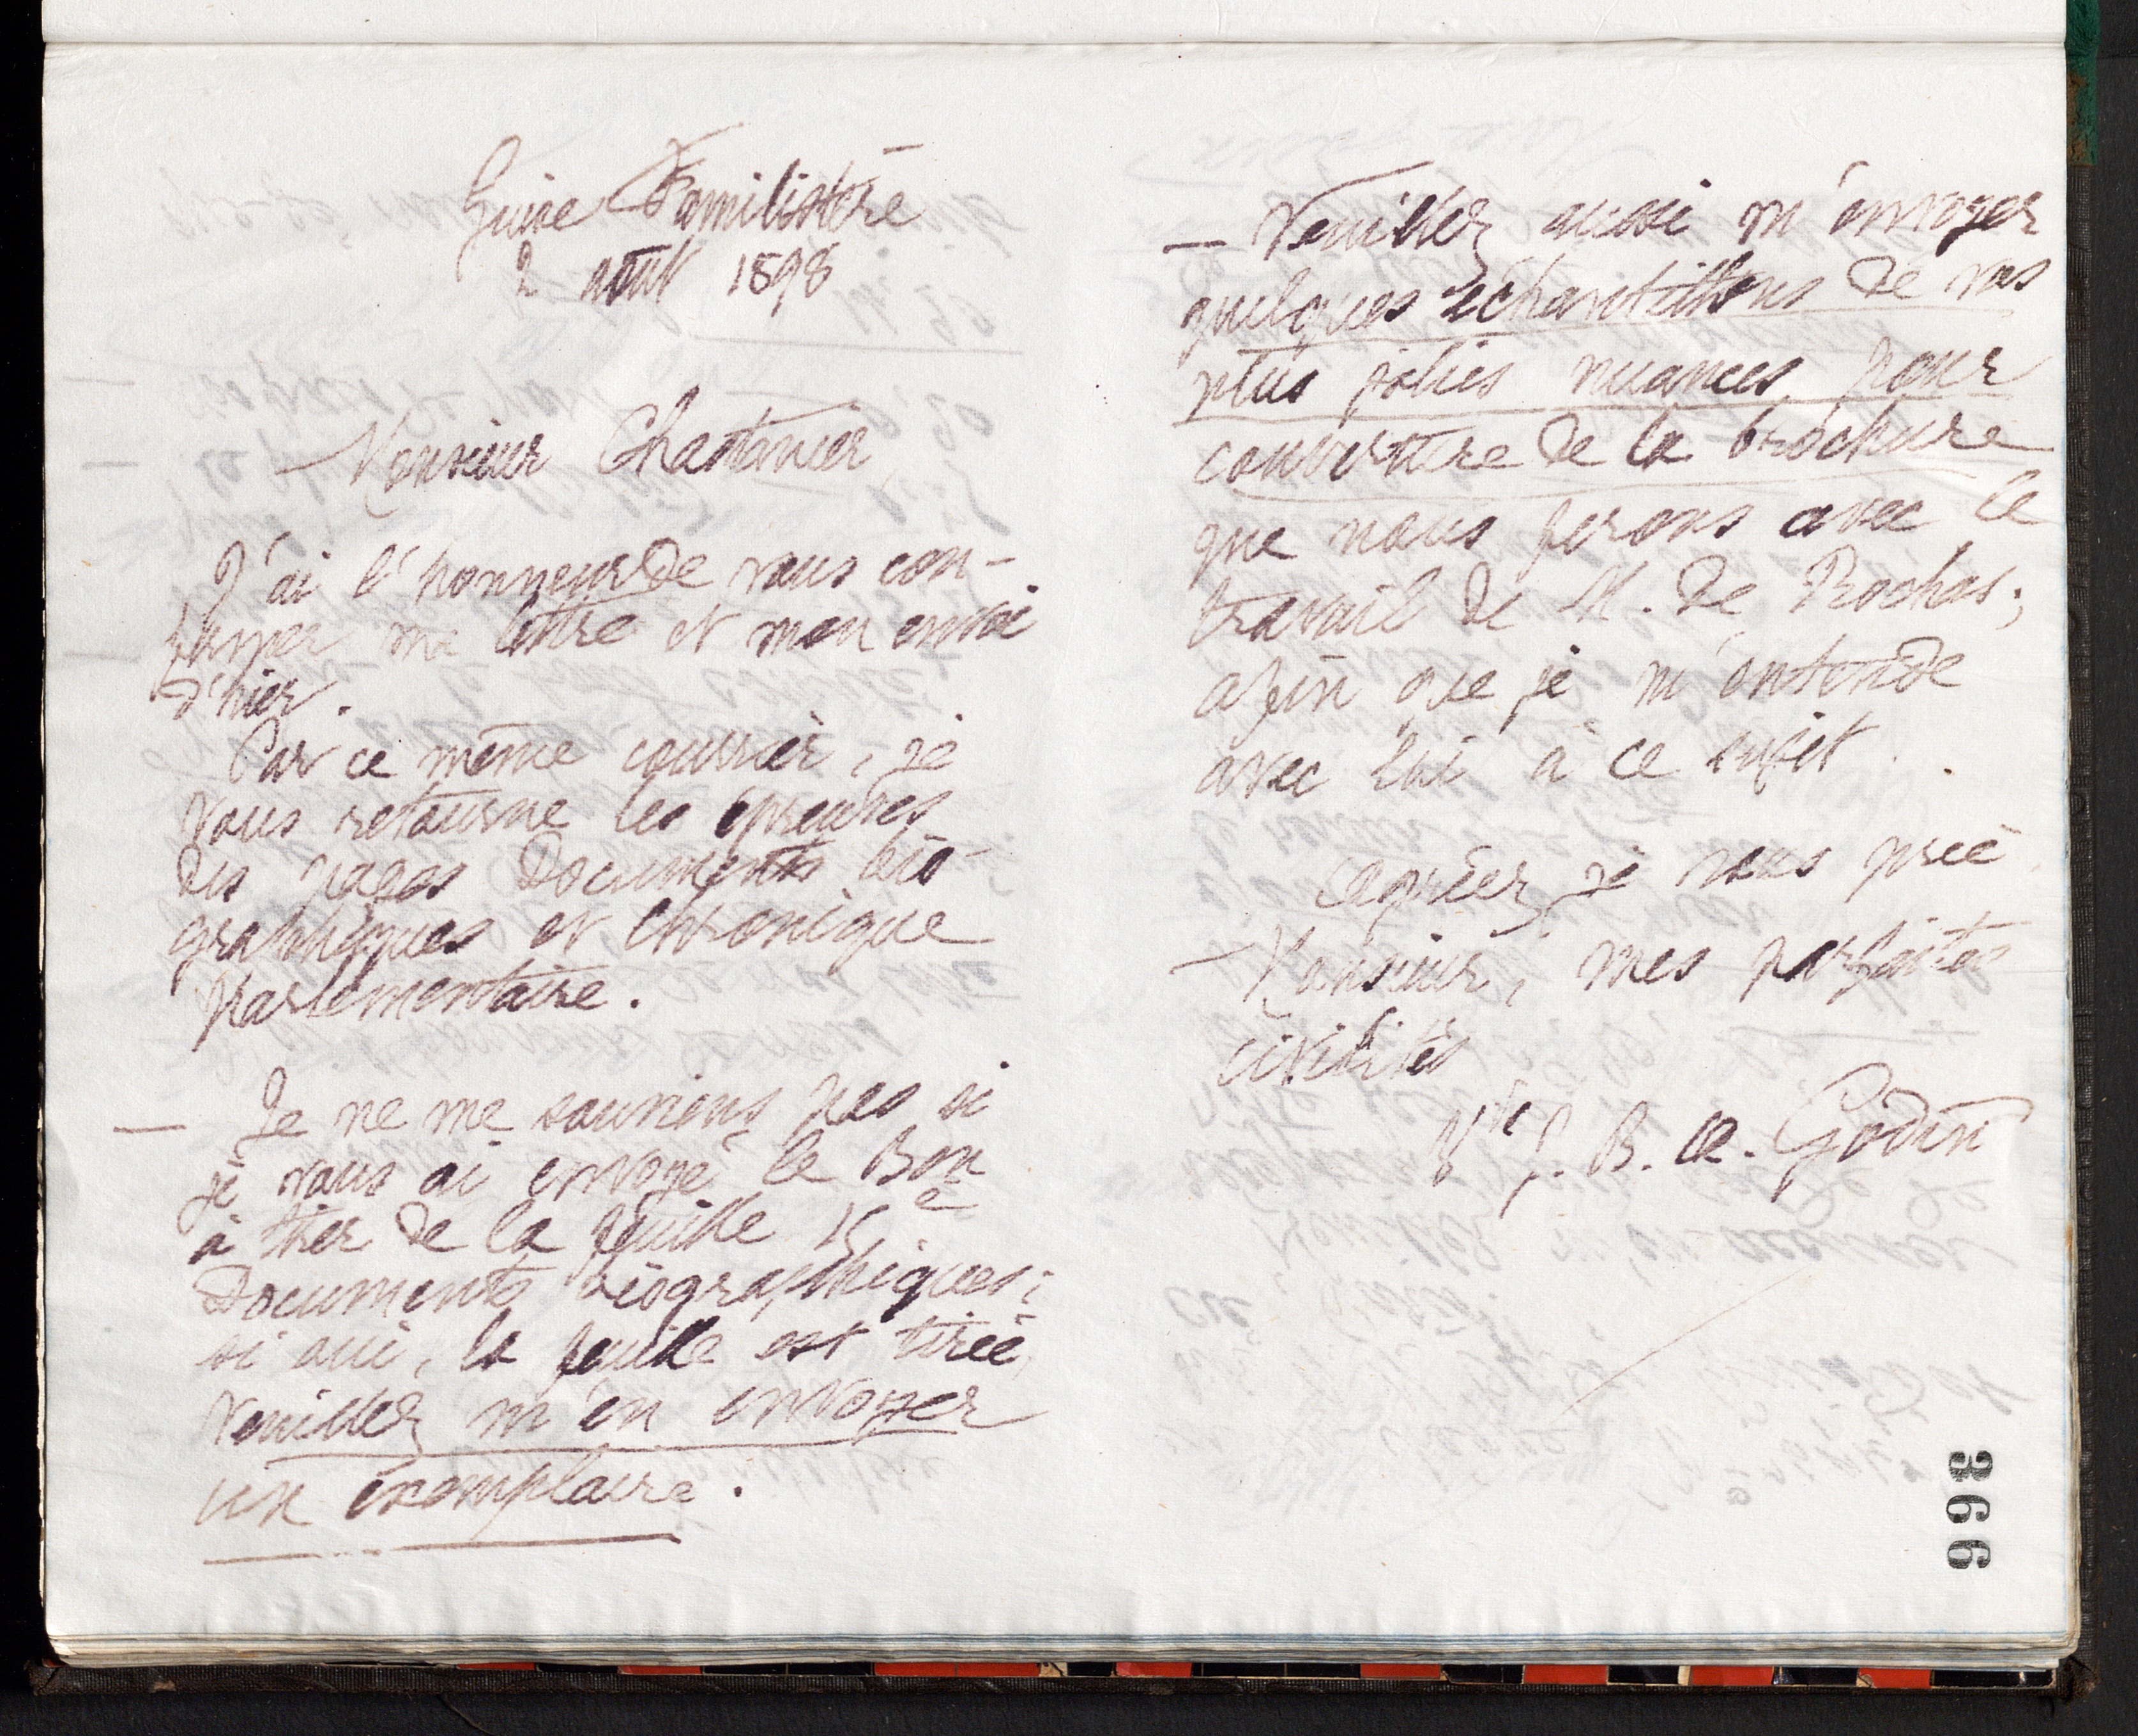 Guise Familistère
2 août 1898
Monsieur Chastanier
J'ai l'honneur de vous con-
firmer ma lettre et mon envoi
d'hier.
Par ce même courrier, je
vous retourne les épreuves
des pages Documents bio-
graphiques et Chronique
parlementaire.
— Je ne me souviens pas si
je vous ai envoyé le Bon
à tirer de la feuille 15e
Documents biographiques ;
si oui, la feuille est tirée,
veuillez m'en envoyer
un exemplaire.
— Veuillez aussi m'envoyer
quelques échantillons de vos
plus jolies nuances pour
couverture de la brochure
que nous ferons avec le
travail de M. de Rochas ;
afin que je m'entende
avec lui à ce sujet.
Agréez, je vous prie
Monsieur, mes parfaites
civilités
Vve J. B. A. Godin
366